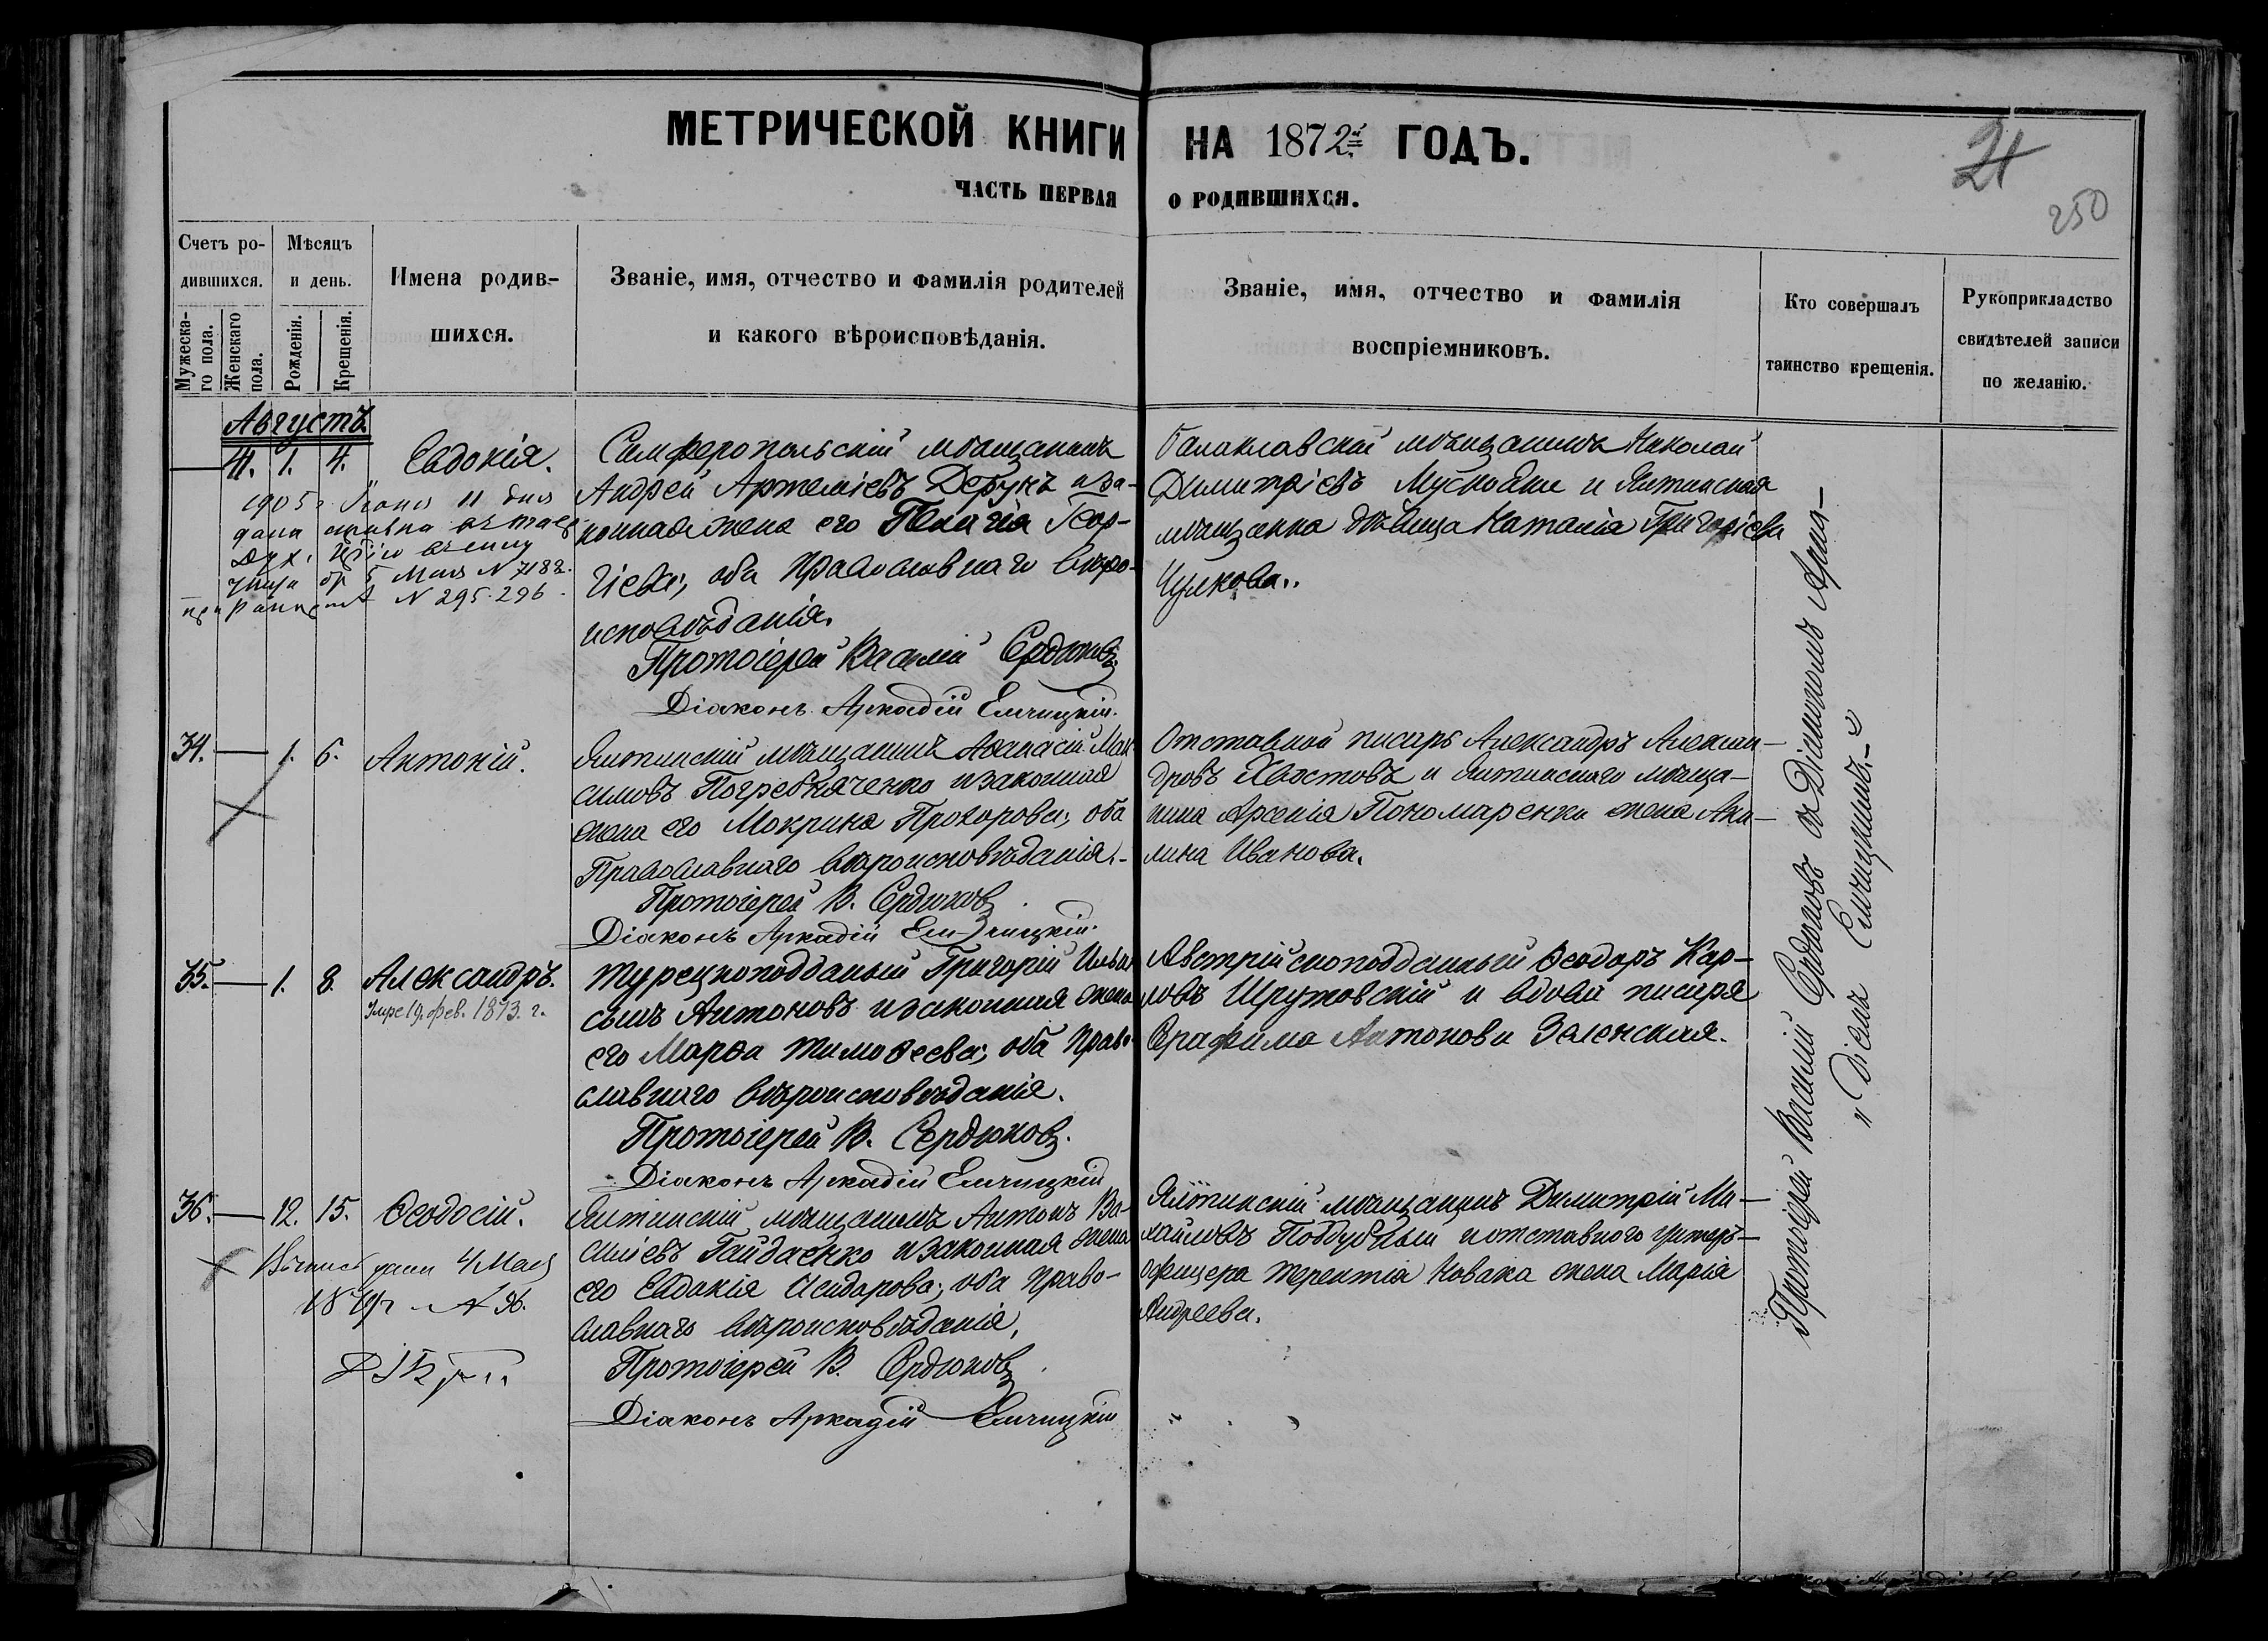 МЕТРИЧЕСКОЙ КНИГИ НА 1872й ГОДЪ.
ЧАСТЬ ПЕРВАЯ О РОДИВШИХСЯ.
21
250
Счетъ ро-
дившихся.
Мужеска-
го пола.
Женскаго
пола.
Мѣсяцъ
и день.
Рожденія.
Крещенія.
Имена родив-
шихся.
Званіе, имя, отчество и фамилія родителей
и какого вѣроисповѣданія.
Званіе, имя, отчество и фамилія
воспріемниковъ.
Кто совершалъ
таинство крещенія.
Рукоприкладство
свидѣтелей записи
по желанію.
Августъ
41. 1. 4. Евдокія.
1905 г. 11 дня
дана
N 7188.
N 295.296.
Симферопольскій мѣщанинъ
Андрей Артеміевъ Дерукъ и за-
конная жена его Пелагія Геор-
гіева, оба Православнаго вѣро-
исповѣданія.
Протоіерей Василій Сердюковъ
Діаконъ Аркадій Емчицкій.
Балаклавскій мѣщанинъ Николай
Димитріевъ и Ялтинская
мѣщанка дѣвица Наталія Григоріева
Чулкова.
34. 1. 6. Антоній.
Ялтинскій мѣщанинъ Аѳанасій Мак-
симовъ Погребняченко и законная
жена его Мокрина Прохорова, оба
Православнаго вѣроисповѣданія.-
Протоіерей В. Сердюковъ
Діаконъ Аркадій Емчицкій.
Отставной писарь Александръ Алексан-
дровъ Хвостовъ и Ялтинскаго мѣща-
нина Арсенія Пономаренки жена Аки-
лина Иванова.
35. 1. 8. Александръ.
Умре 19. фев. 1873. г.
Турецкоподданый Григорій Ильинъ
сынъ Антоновъ и законная жена
его Марѳа Тимоѳеева, оба Право-
славнаго вѣроисповѣданія.
Протоіерей В. Сердюковъ.
Діаконъ Аркадій Емчицкій
Австрійскоподданный Ѳеодоръ Кар-
ловъ Шрутовскій и вдова писаря
Серафима Антонова Зеленская.
36. 12. 15. Ѳеодосій.
дана 4 Мая
N 36.
Ялтинскій мѣщанинъ Антонъ Ва-
силіевъ Гайдаенко и законная жена
его Евдокія Исидорова, оба Право-
славнаго вѣроисповѣданія,
Протоіерей В. Сердюковъ
Діаконъ Аркадій Емчицкій
Ялтинскій мѣщанинъ Димитрій Ми-
хайловъ Поддубный и отставного унтеръ-
офицера Терентія Новака жена Марія
Андреева.
Протоіерей Василій Сердюковъ съ Діакономъ Арка-
діемъ Емчицкимъ.-